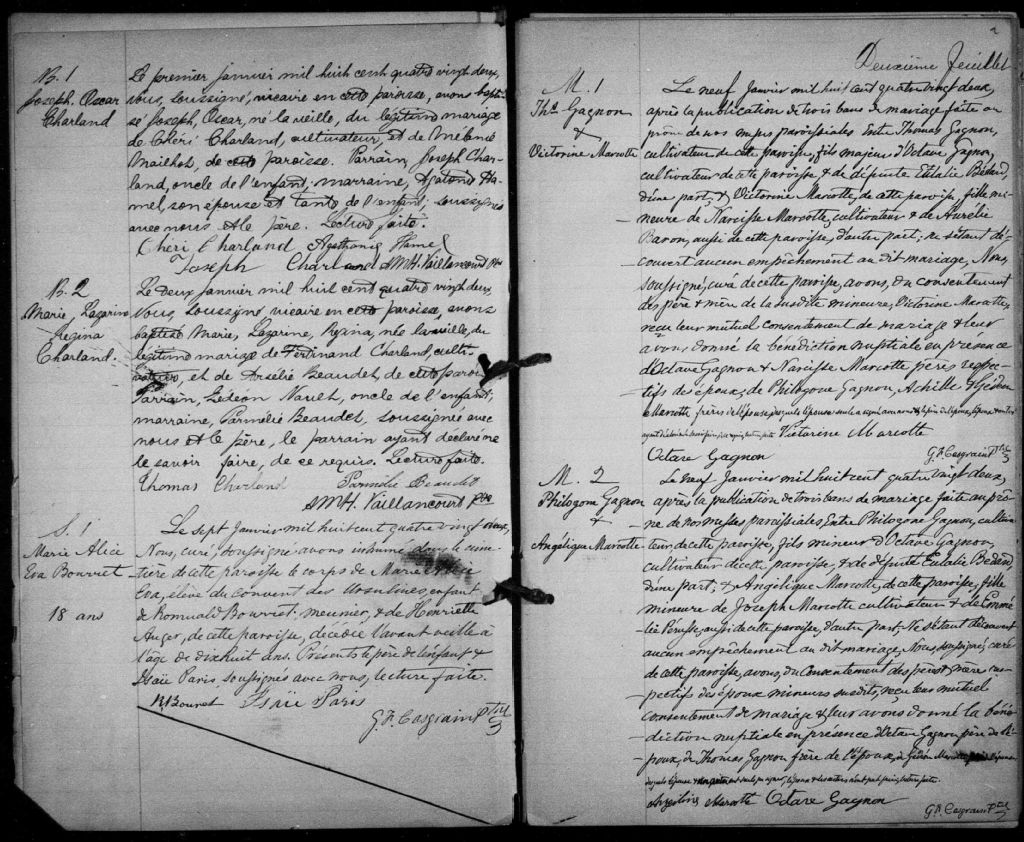 B. 1
Joseph, Oscar
Charland
Le premier janvier mil huit cent quatre vingt deux,
Nous, soussigné, vicaire en cette paroisse, avons bapti-
sé Joseph, Oscar, né la veille, du légitime mariage
de Chéri Charland, cultivateur, et de Mélanie
Mailhot, de cette paroisse. Parrain, Joseph Char-
land, oncle de l'enfant; marraine, Agatonie Ha-
mel, son épouse et tante de l'enfant; soussignés
avec nous & le père. Lecture faite.
Chéri Charland Agathonie Hamel
Joseph Charland AMH. Vaillancourt Ptre
B. 2
Marie, Lazarine
Regina
Charland.
Le deux janvier mil huit cent quatre vingt deux,
Nous, soussigné vicaire en cette paroisse, avons
baptisé Marie, Lazarine, Régina, née la veille, du
légitime mariage de Ferdinand Charland, culti-
vateur, et de Arselie Beaudet, de cette paroi
Parrain, Gédéon Nault, oncle de l'enfant;
marraine, Parmélie Beaudet, soussignée avec
nous & le père, le parrain ayant déclaré ne
le savoir faire, de ce requis. Lecture faite.
Thomas Charland Parmélie Beaudet
AMH. Vaillancourt Ptre
S. 1
Marie Alice
Eva Bourret
18 ans
Le sept Janvier mil huit cent quatre vingt deux,
Nous, curé, soussigné avons inhumé dans le cime-
tière de cette paroisse le corps de Marie Alice
Eva, élève du Couvent des Ursulines enfant
de Romuald Bourret meunier, & de Henriette
Auger, de cette paroisse, décédée l'avant veille à
l'âge de dix huit ans. Présents le père de l'enfant &
Isaïe Paris soussignés avec nous, lecture faite.
R. Bourret Isaïe Paris
G. F. Casgrain Ptre
2
Deuxième feuillet
M. 1
Ths Gagnon
&
Victorine Marcotte
Le neuf Janvier mil huit cent quatre vingt deux,
après la publication de trois bans de mariage faite au
prône de nos messes paroissiales Entre Thomas Gagnon,
cultivateur de cette paroisse, fils majeur d'Octave Gagnon,
cultivateur de cette paroisse & de défunte Eulalie Bédard,
d'une part, & Victorine Marcotte, de cette paroisse, fille mi-
neure de Narcisse Marcotte, cultivateur & de Aurélie
Baron, aussi de cette paroisse, d'autre part; ne s'étant dé-
couvert aucun empêchement au dit mariage, Nous,
soussigné, curé de cette paroisse, avons, du consentement
des père & mère de la susdite mineure, Victorine Marcotte,
reçu leur mutuel consentement de mariage & leur
avons donné la bénédiction nuptiale en présence
d'Octave Gagnon & Narcisse Marcotte pères respec-
tifs des époux, de Philogone Gagnon, Achille & Gédéon
Marcotte frères de l'épouse
Victorine Marcotte
Octave Gagnon G. F. Casgrain Ptre
M. 2
Philogone Gagnon
&
Angélique Marcotte
Le neuf Janvier mil huit cent quatre vingt deux,
après la publication de trois bans de mariage faite au prô-
ne de nos messes paroissiales Entre Philogone Gagnon, cultiva-
teur, de cette paroisse, fils mineur d'Octave Gagnon,
cultivateur de cette paroisse, & de défunte Eulalie Bédard,
d'une part; & Angélique Marcotte, de cette paroisse, fille
mineure de Joseph Marcotte cultivateur & de Emmé
lie Pérusse, aussi de cette paroisse, d'autre part; Ne s'étant découvert
aucun empêchement au dit mariage, Nous soussigné, curé
de cette paroisse, avons, du consentement des père & mère res-
pectifs des époux mineurs susdits, reçu leur mutuel
consentement de mariage & leur avons donné la béné-
diction nuptiale en présence d'Octave Gagnon père de l'é-
poux, de Thomas Gagnon frère de l'époux, & Gédéon Marcotte
Angeline Marcotte Octave Gagnon
G. F. Casgrain Ptre